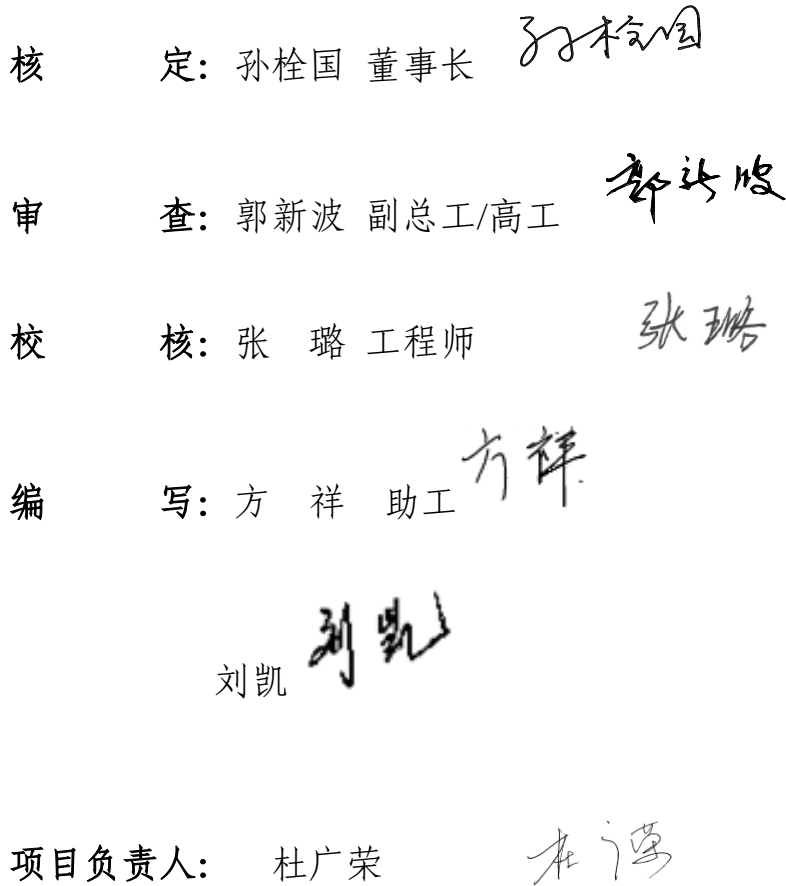 核 定：孙栓国 董事长 孙栓国
审 查：郭新波 副总工/高工 郭新波
校 核：张 璐 工程师 张璐
编 写：方 祥 助工 方祥
刘凯 刘凯
项目负责人： 杜广荣 杜广荣